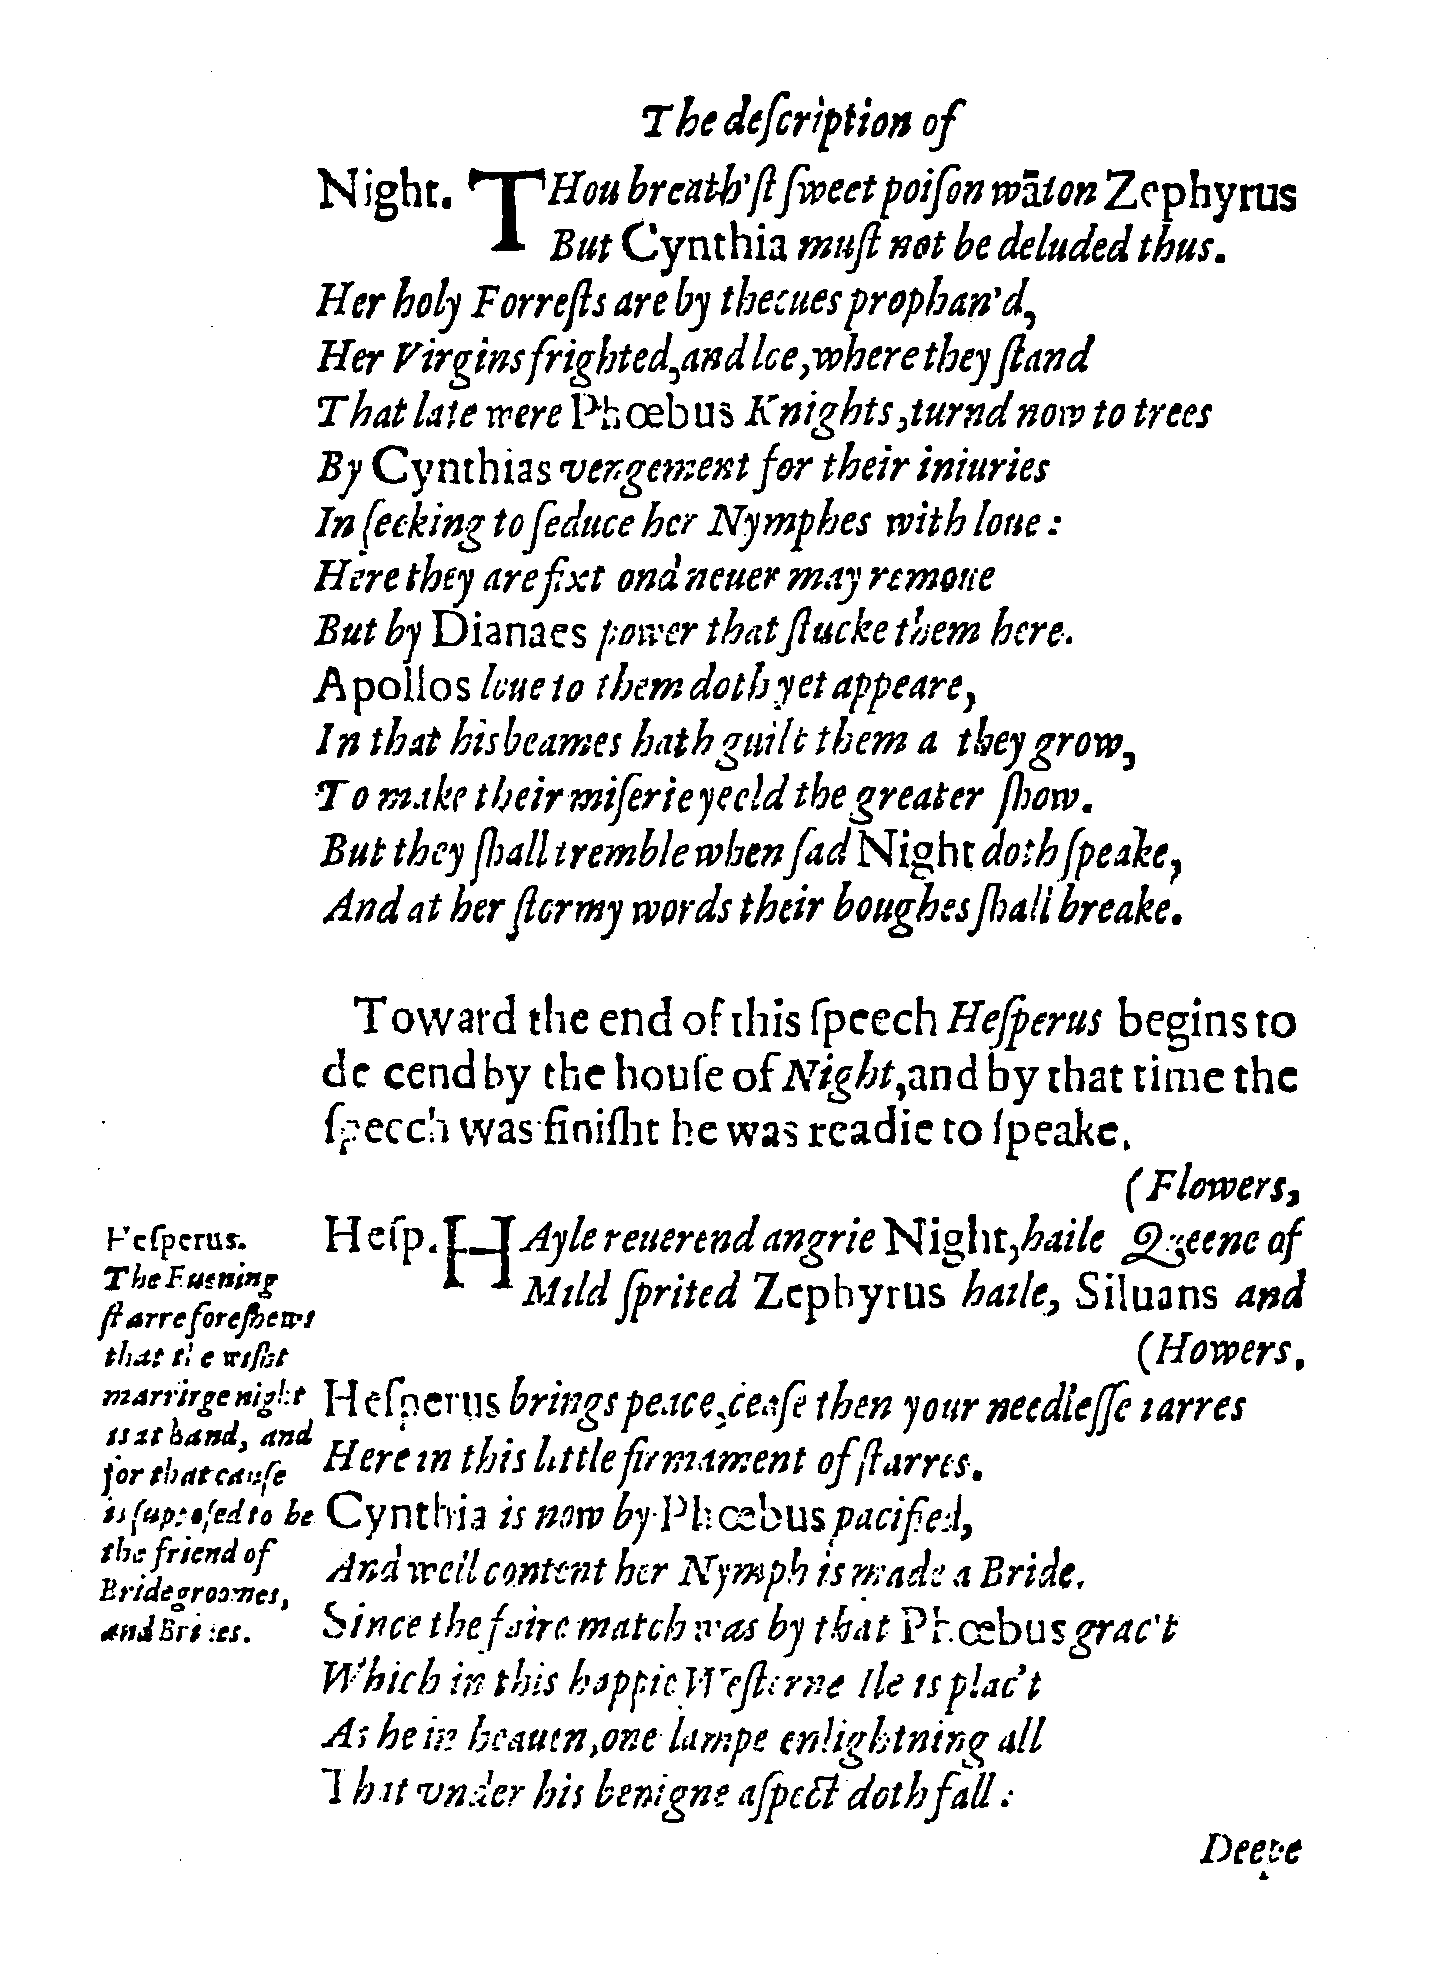 The deſcription of
Night. THou breath'ſt ſweet poiſon wāton Zephyrus
But Cynthia muſt not be deluded thus.
Her holy Forreſts are by theeues prophan'd,
Her Virgins frighted, and loe, where they ſtand
That late were Phœbus Knights, turnd now to trees
By Cynthias vengement for their iniuries
In ſeeking to ſeduce her Nymphes with loue:
Here they are fixt ond neuer may remoue
But by Dianaes power that ſtucke them here.
Apollos loue to them doth yet appeare,
In that his beames hath guilt them a they grow,
To make their miſerie yeeld the greater ſhow.
But they ſhall tremble when ſad Night doth ſpeake,
And at her ſtormy words their boughes ſhall breake.
Toward the end of this ſpeech Heſperus begins to
de cend by the houſe of Night, and by that time the
ſpeech was finiſht he was readie to ſpeake.
(Flowers,
Heſp. HAyle reuerend angrie Night, haile Queene of
Mild ſprited Zephyrus haile, Siluans and
(Howers.
Heſperus brings peace, ceaſe then your needleſſe iarres
Here in this little firmament of ſtarres.
Cynthia is now by Phœbus pacified,
And well content her Nymph is made a Bride.
Since the faire match was by that Phœbus grac't
Which in this happie Weſterne Ile is plac't
As he in heauen, one lampe enlightning all
That vnder his benigne aſpect doth fall:
Heſperus.
The Euening
ſtarre foreſhews
that the wiſht
marrirge night
is at hand, and
for that cauſe
is ſuppoſed to be
the friend of
Bridegroomes,
and Brides.
Deepe